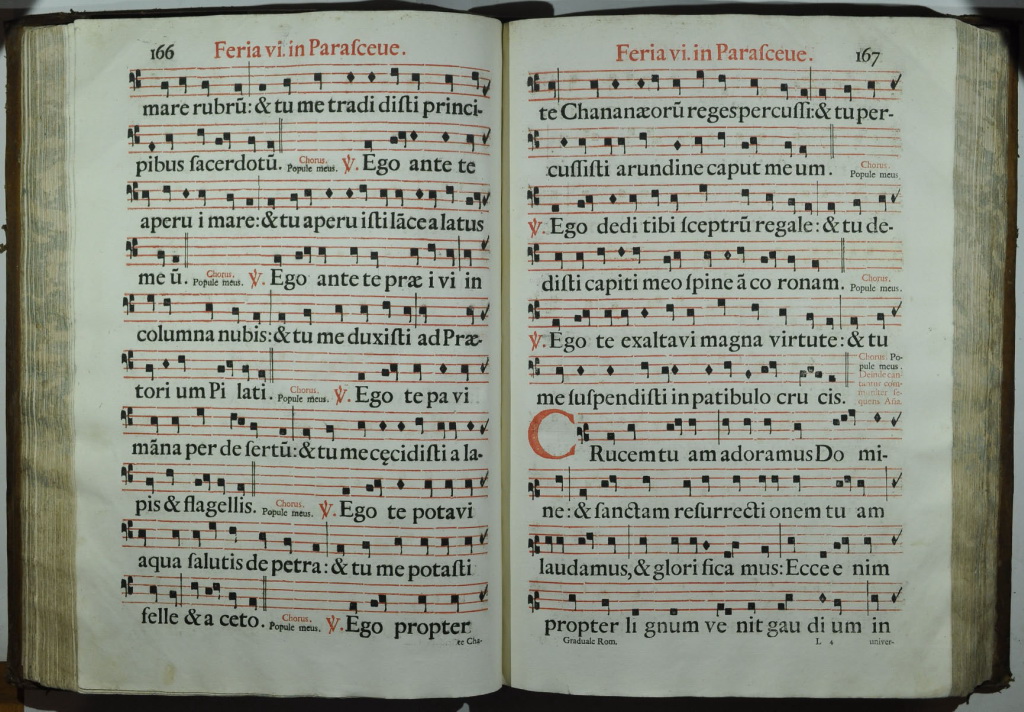 166 Feria vi. in Paraſceue.
mare rubrũ: & tu me tradi diſti princi-
pibus ſacerdotũ. Chorus. Popule meus. ℣. Ego ante te
aperu i mare: & tu aperu iſti lãce a latus
me ũ. Chorus. Popule meus. ℣. Ego ante te præ i vi in
columna nubis: & tu me duxiſti ad Præ-
tori um Pi lati. Chorus. Popule meus. ℣. Ego te pa vi
mãna per de ſertũ: & tu me cęcidiſti a la-
pis & flagellis. Chorus. Popule meus. ℣. Ego te potavi
aqua ſalutis de petra: & tu me potaſti
felle & a ceto. Chorus. Popule meus. ℣. Ego propter
te Cha-
Feria vi. in Paraſceue. 167
te Chananæorũ reges percuſſi: & tu per-
cuſſiſti arundine caput me um. Chorus. Popule meus.
℣. Ego dedi tibi ſceptrũ regale: & tu de-
diſti capiti meo ſpine ã co ronam. Chorus. Popule meus.
℣. Ego te exaltavi magna virtute: & tu
me ſuſpendiſti in patibulo cru cis. Chorus. Po-
pule meus.
Deinde can-
tatur com-
muniter ſe-
quens Aña.
CRucem tu am adoramus Do mi-
ne: & ſanctam reſurrecti onem tu am
laudamus, & glori fica mus: Ecce e nim
propter li gnum ve nit gau di um in
Graduale Rom. L 4 univer-